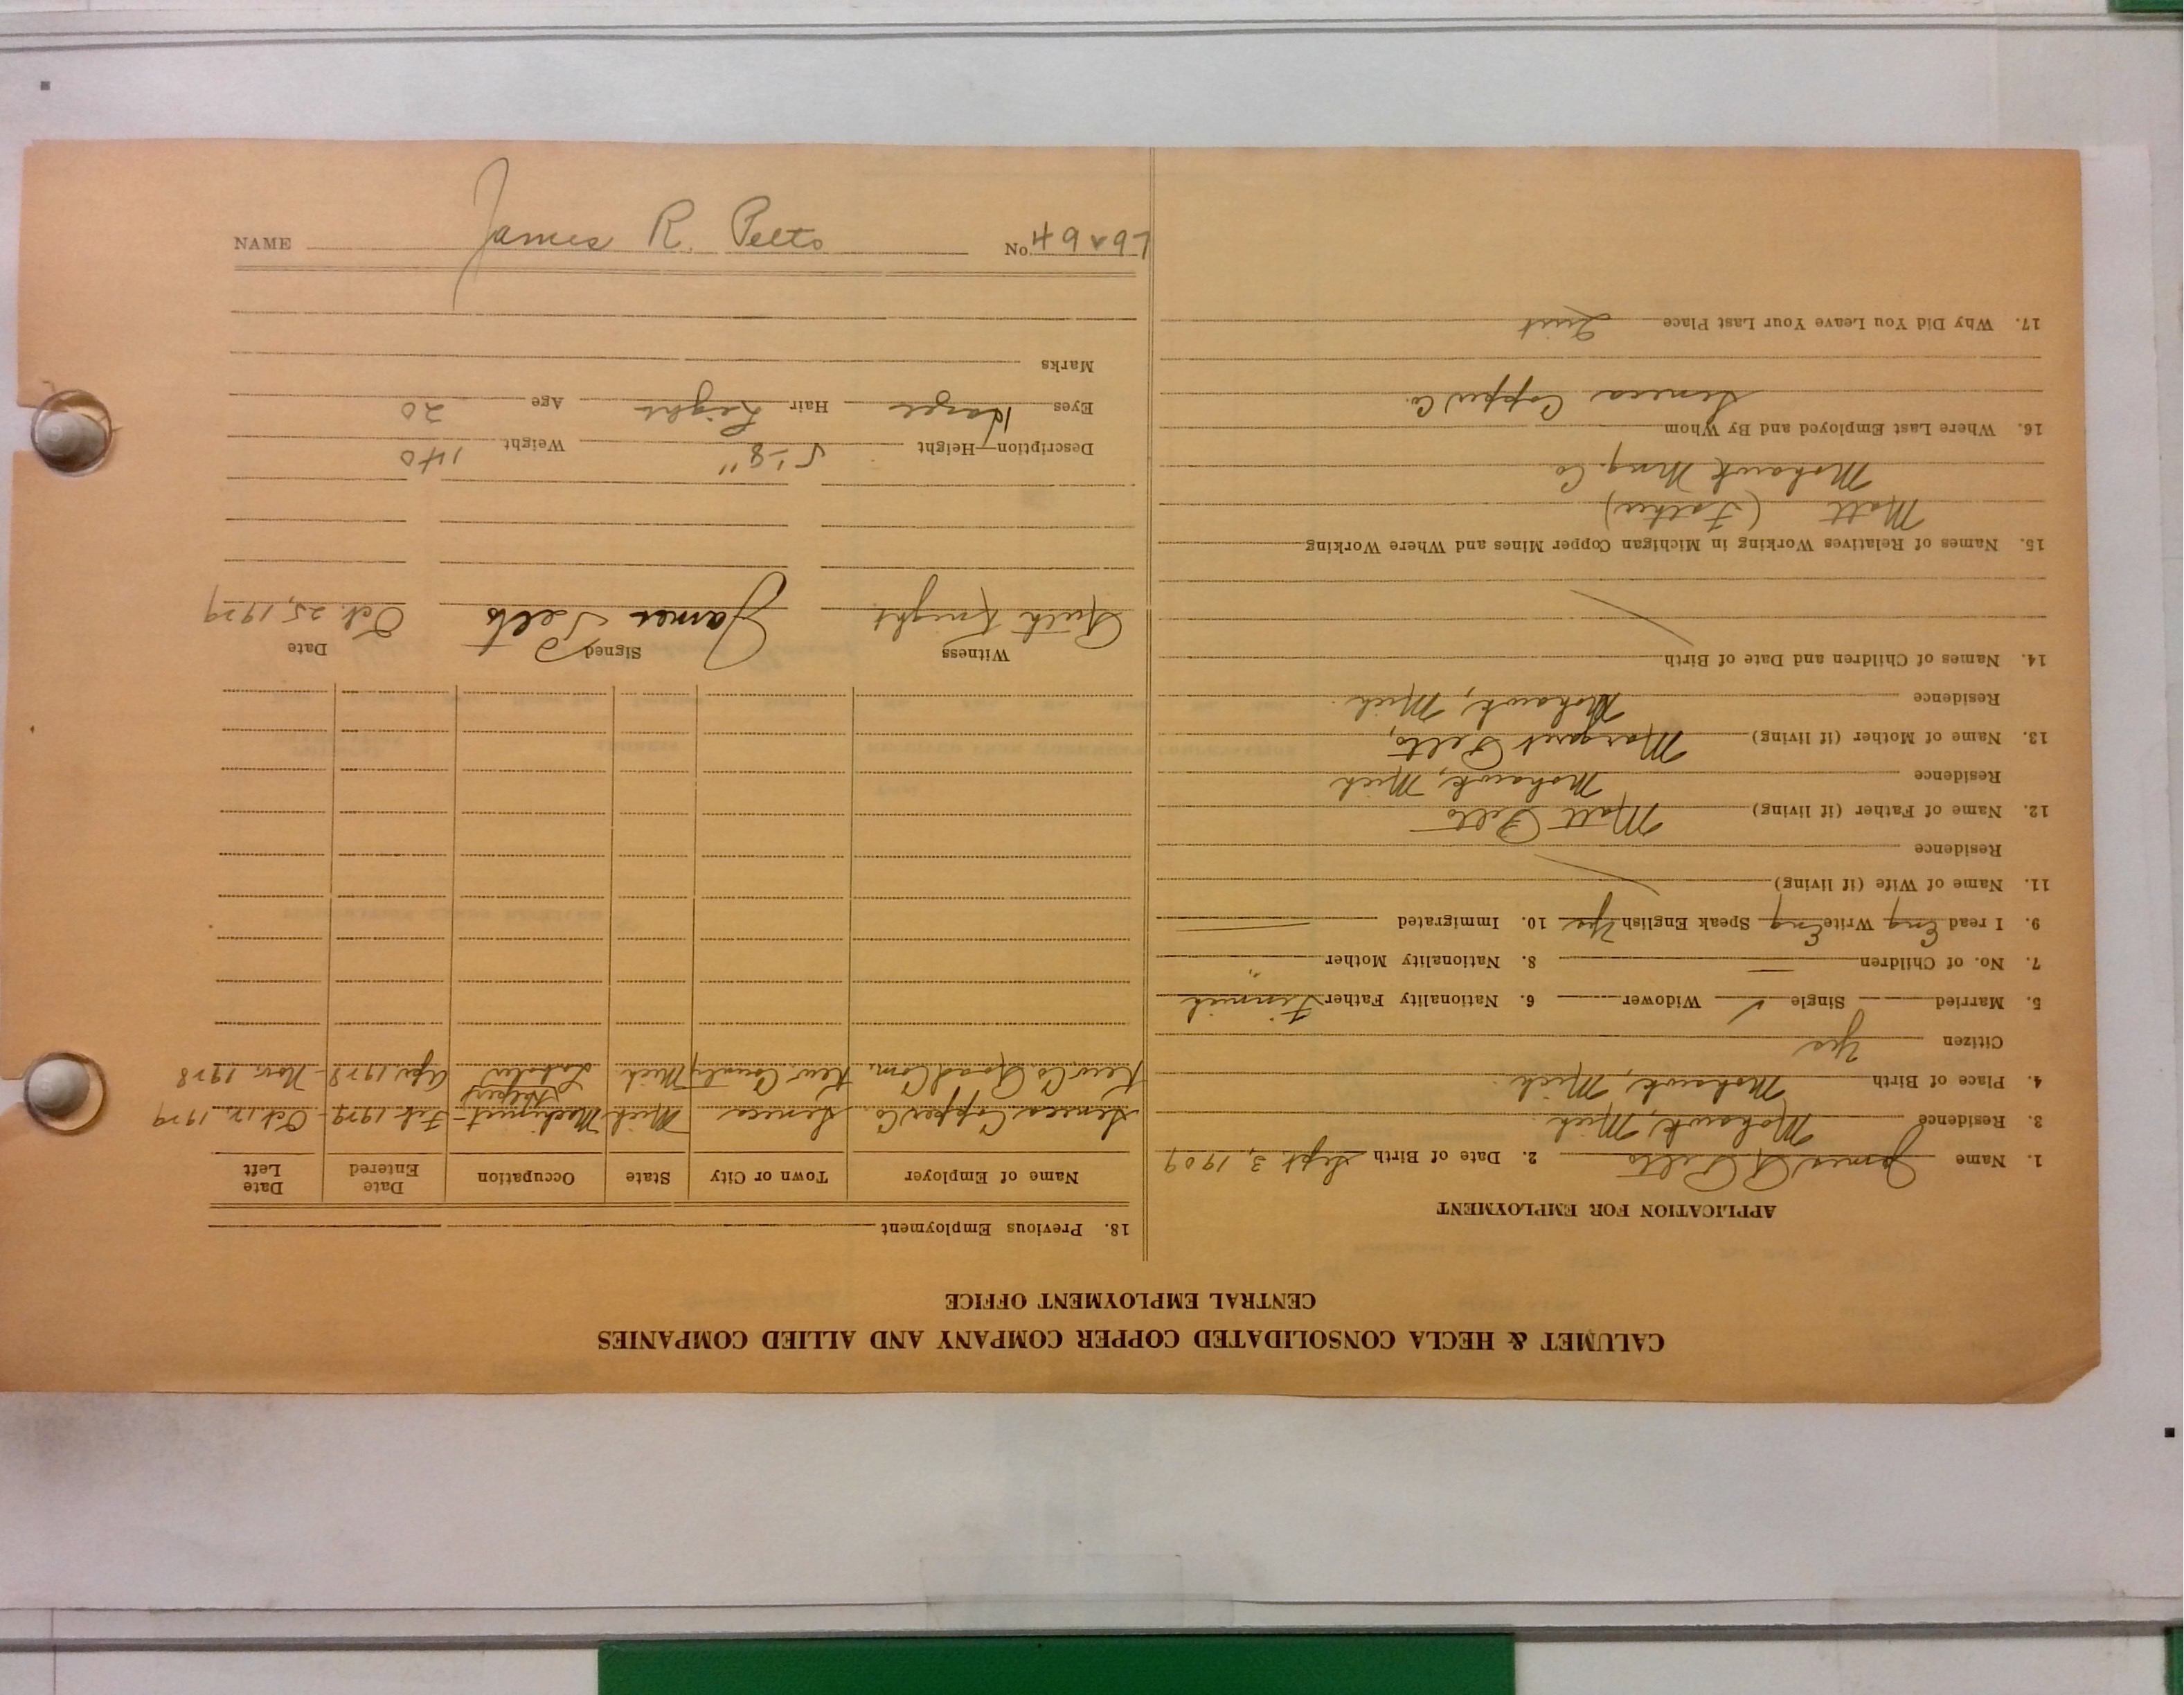 CALUMET & HECLA CONSOLIDATED COPPER COMPANY AND ALLIED COMPANIES
CENTRAL EMPLOYMENT OFFICE
APPLICATION FOR EMPLOYMENT
1. Name James R Pelto 2. Date of Birth Sept. 3, 1909
3. Residence Mohawk, Mich.
4. Place of Birth Mohawk, Mich.
Citizen Yes
5. Married Single ✓ Widower 6. Nationality Father Finnish
7. No. of Children — 8. Nationality Mother "
9. I read Eng Write Eng Speak English Yes 10. Immigrated
11. Name of Wife (if living)
Residence
12. Name of Father (if living) Matt Pelto
Residence Mohawk, Mich
13. Name of Mother (if living) Margaret Pelto,
Residence Mohawk, Mich.
14. Names of Children and Date of Birth
15. Names of Relatives Working in Michigan Copper Mines and Where Working
Matt (Father)
Mohawk Mng. Co
16. Where Last Employed and By Whom
Seneca Copper Co.
17. Why Did You Leave Your Last Place Quit
18. Previous Employment
Name of Employer Town or City State Occupation Date Entered Date Left
Seneca Copper Co. Seneca Mich Machinist Helper Feb. 1929 - Oct. 12, 1929
Kew. Co. Road Com. Kew. County Mich Laborer Apr. 1928 - Nov. 1928
Witness Signed Date
Ruth Knight James Pelto Oct. 25, 1929
Description—Height 5'-8" Weight 140
Eyes Hazel Hair Light Age 20
Marks
NAME James R. Pelto No 49v97